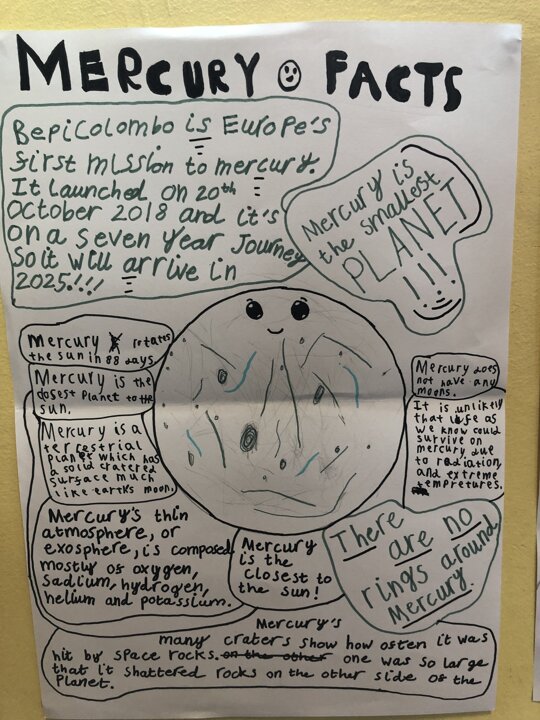 MERCURY FACTS
BepiColombo is Europe's
first mission to mercury.
It launched on 20th
October 2018 and it's
on a seven year Journey
So it will arrive in
2025!!!
Mercury is
the smallest
PLANET
!!!
Mercury rotates
the sun in 88 days.
Mercury is the
closest Planet to the
sun.
Mercury is a
terrestrial
planet which has
a solid cratered
surface much
like earths moon.
Mercury's thin
atmosphere, or
exosphere, is composed
mostly of oxygen,
sadium, hydrogen,
helium and potassium.
Mercury
is the
closest to
the sun!
Mercury does
not have any
moons.
It is unlikly
that life as
we know could
survive on
mercury due
to radiation,
and extreme
tempretures.
There
are no
rings around
Mercury.
Mercury's
many craters show how often it was
hit by space rocks. on the other one was so large
that it shattered rocks on the other side of the
Planet.